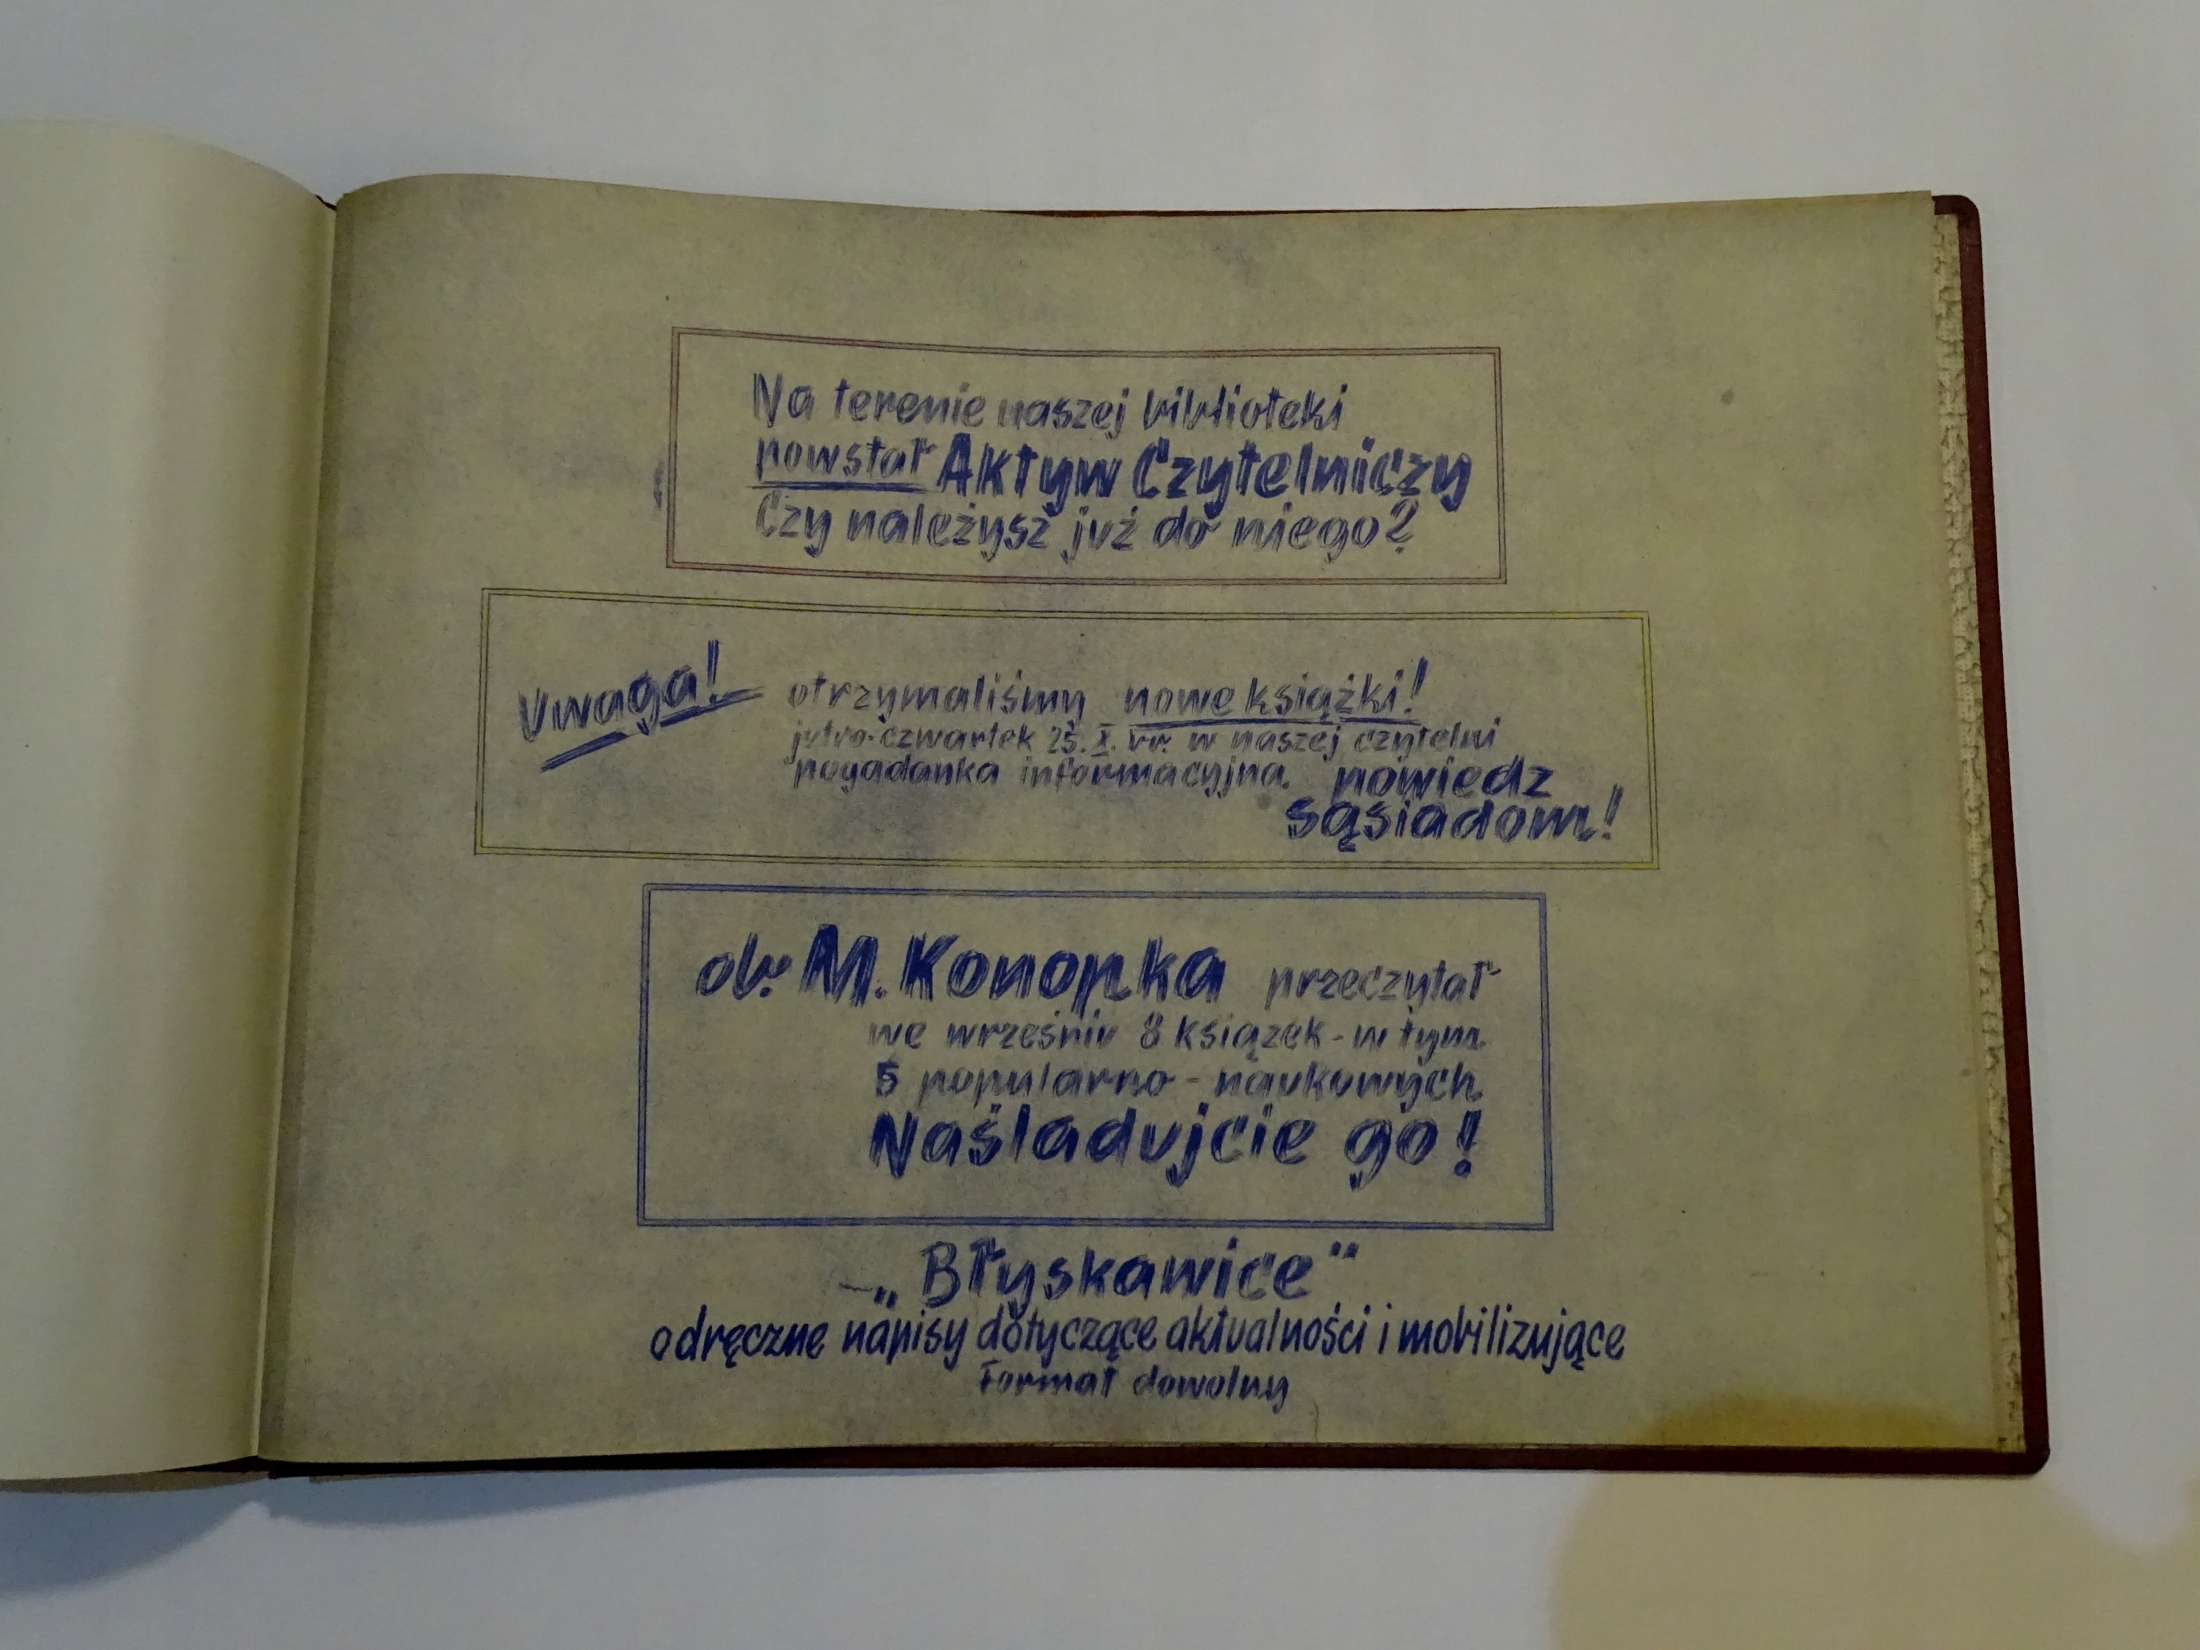 Na terenie naszej biblioteki
powstał Aktyw Czytelniczy
Czy należysz już do niego?
Uwaga! otrzymaliśmy nowe książki!
jutro-czwartek 25. X. br. w naszej czytelni
pogadanka informacyjna. powiedz
sąsiadom!
ob. M. Konopka przeczytał
we wrześniu 8 książek - w tym
5 popularno - naukowych
Naśladujcie go!
„Błyskawice"
odręczne napisy dotyczące aktualności i mobilizujące
Format dowolny